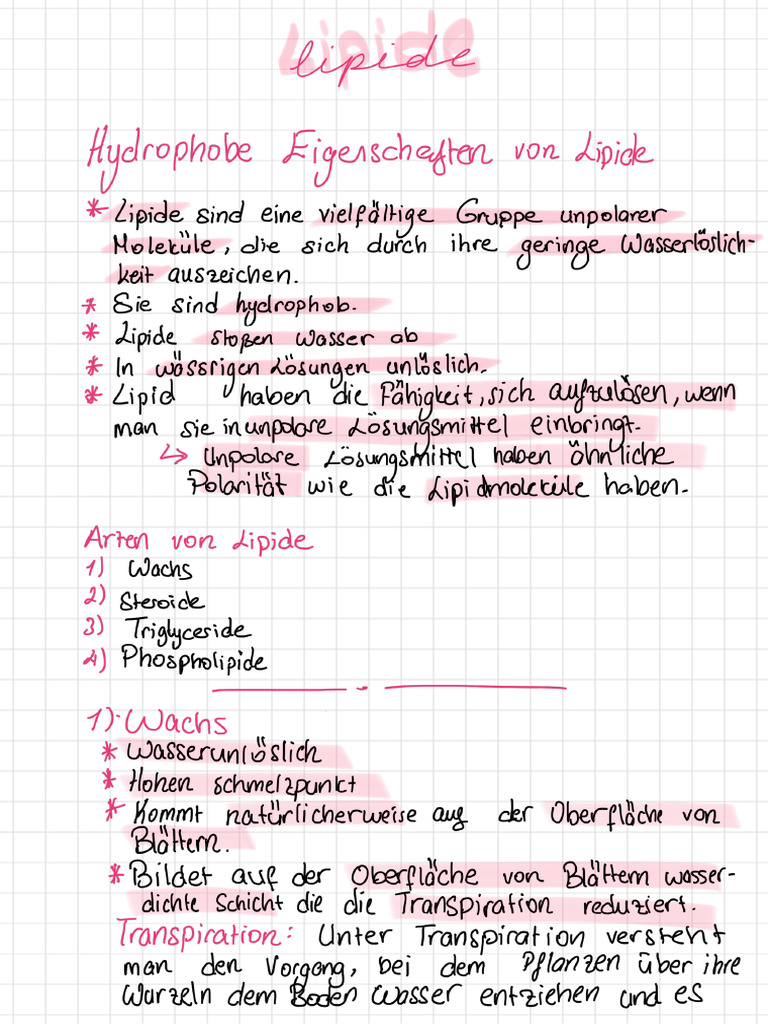 Lipide
lipide
Hydrophobe Eigenschaften von Lipide
* Lipide sind eine vielfältige Gruppe unpolarer
Moleküle, die sich durch ihre geringe Wasserlöslich-
keit auszeichen.
* Sie sind hydrophob.
* Lipide stoßen wasser ab
* In wässrigen Lösungen unlöslich.
* Lipid haben die Fähigkeit, sich aufzulösen, wenn
man sie in unpolare Lösungsmittel einbringt.
↳ Unpolare Lösungsmittel haben ähnliche
Polarität wie die Lipidmoleküle haben.
Arten von Lipide
1) Wachs
2) Steroide
3) Triglyceride
4) Phospholipide
1). Wachs
* Wasserunlöslich
* Hohen schmelzpunkt
* Kommt natürlicherweise auf der Oberfläche von
Blättern.
* Bildet auf der Oberfläche von Blättern wasser-
dichte Schicht die die Transpiration reduziert.
Transpiration: Unter Transpiration versteht
man den Vorgang, bei dem Pflanzen über ihre
Wurzeln dem Boden Wasser entziehen und es